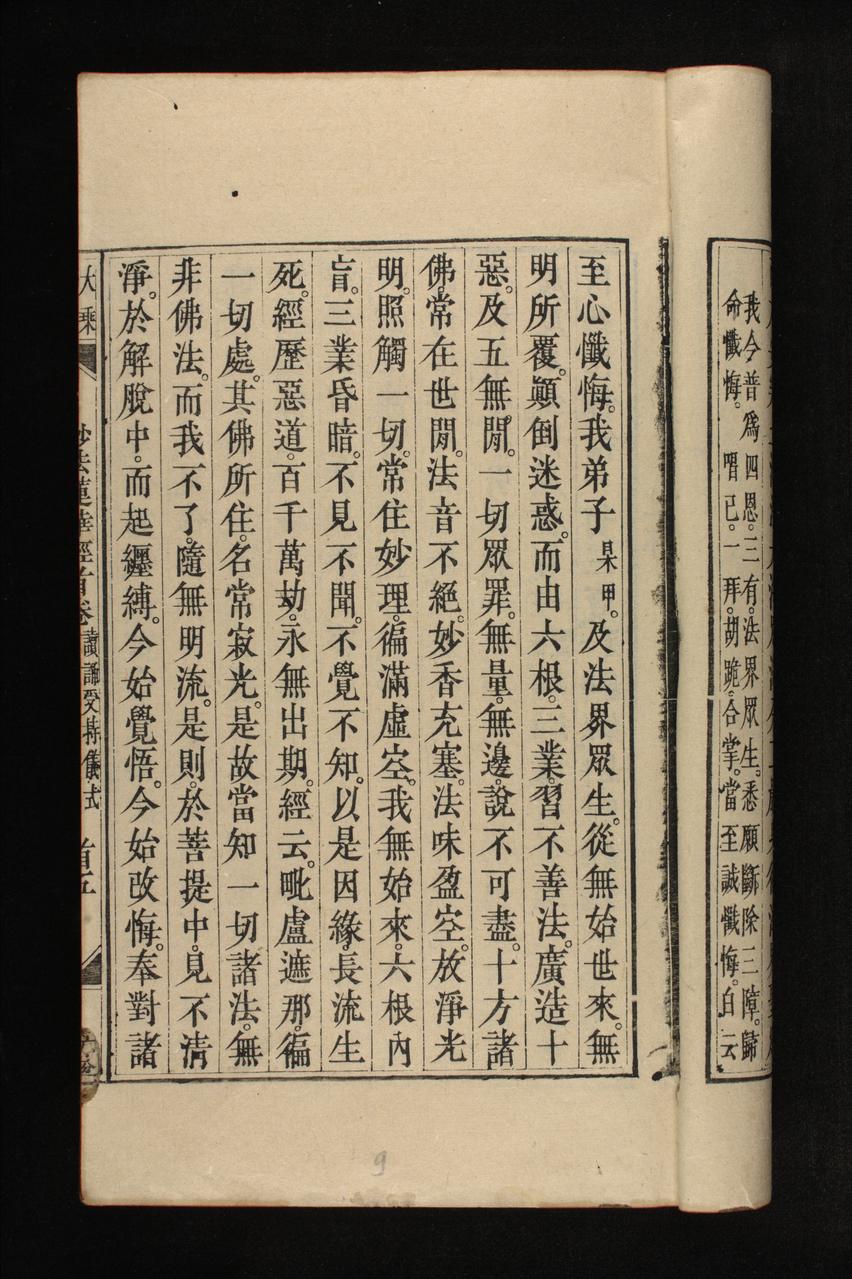 我今普爲四恩。三有。法界眾生。悉願斷除三障。歸
命懺悔。唱已。一拜。胡跪。合掌。當至誠懺悔。白云
至心懺悔。我弟子某甲。及法界眾生。從無始世來。無
明所覆。顚倒迷惑。而由六根。三業。習不善法。廣造十
惡。及五無閒。一切眾罪。無量。無邊。說不可盡。十方諸
佛。常在世閒。法音不絕。妙香充塞。法味盈空。放淨光
明。照觸一切。常住妙理。徧滿虛空。我無始來。六根內
盲。三業昏暗。不見不聞。不覺不知。以是因緣。長流生
死。經歷惡道。百千萬劫。永無出期。經云。毗盧遮那。徧
一切處。其佛所住。名常寂光。是故當知一切諸法。無
非佛法。而我不了。隨無明流。是則。於菩提中。見不清
淨。於解脫中。而起纏縛。今始覺悟。今始改悔。奉對諸
大乘
妙法蓮華經首卷 讀誦受持儀式 首五
9